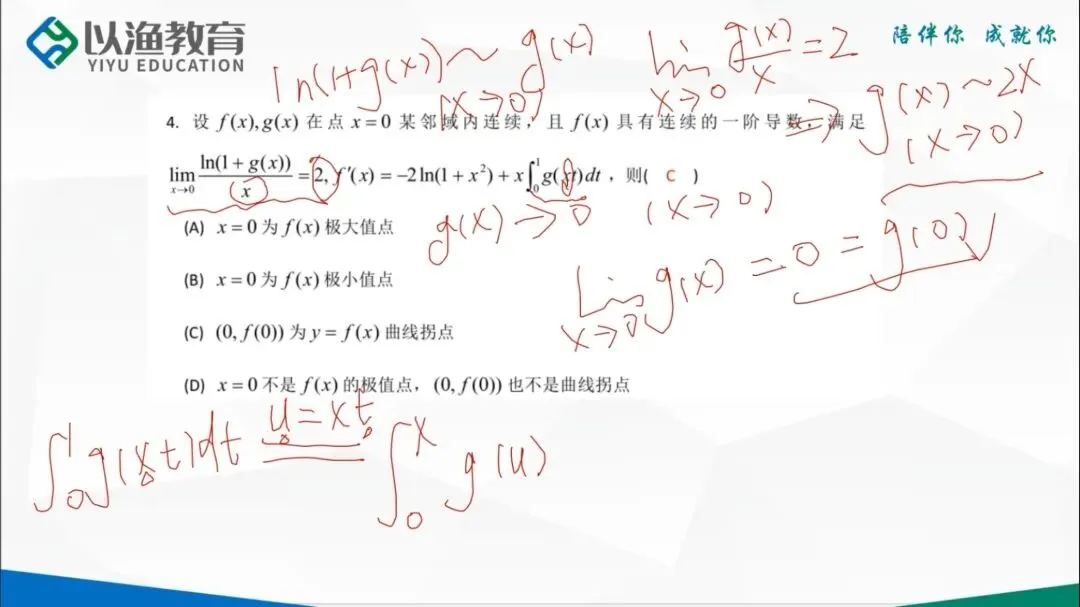 以渔教育
YIYU EDUCATION
陪伴你 成就你
ln(1+g(x)) ~ g(x)
(x→0)
lim x→0 g(x)/x = 2
⇒ g(x) ~ 2x
(x→0)
4. 设 f(x), g(x) 在点 x=0 某邻域内连续，且 f(x) 具有连续的一阶导数，满足
lim x→0 ln(1+g(x))/x = 2, f′(x) = −2ln(1+x²) + x∫₀¹ g(xt)dt，则( C )
(A) x=0 为 f(x) 极大值点
g(x) → 0 (x→0)
(B) x=0 为 f(x) 极小值点
lim x→0 g(x) = 0 = g(0)
(C) (0, f(0)) 为 y = f(x) 曲线拐点
(D) x=0 不是 f(x) 的极值点，(0, f(0)) 也不是曲线拐点
∫₀¹ g(xt)dt u=xt ∫₀ˣ g(u)